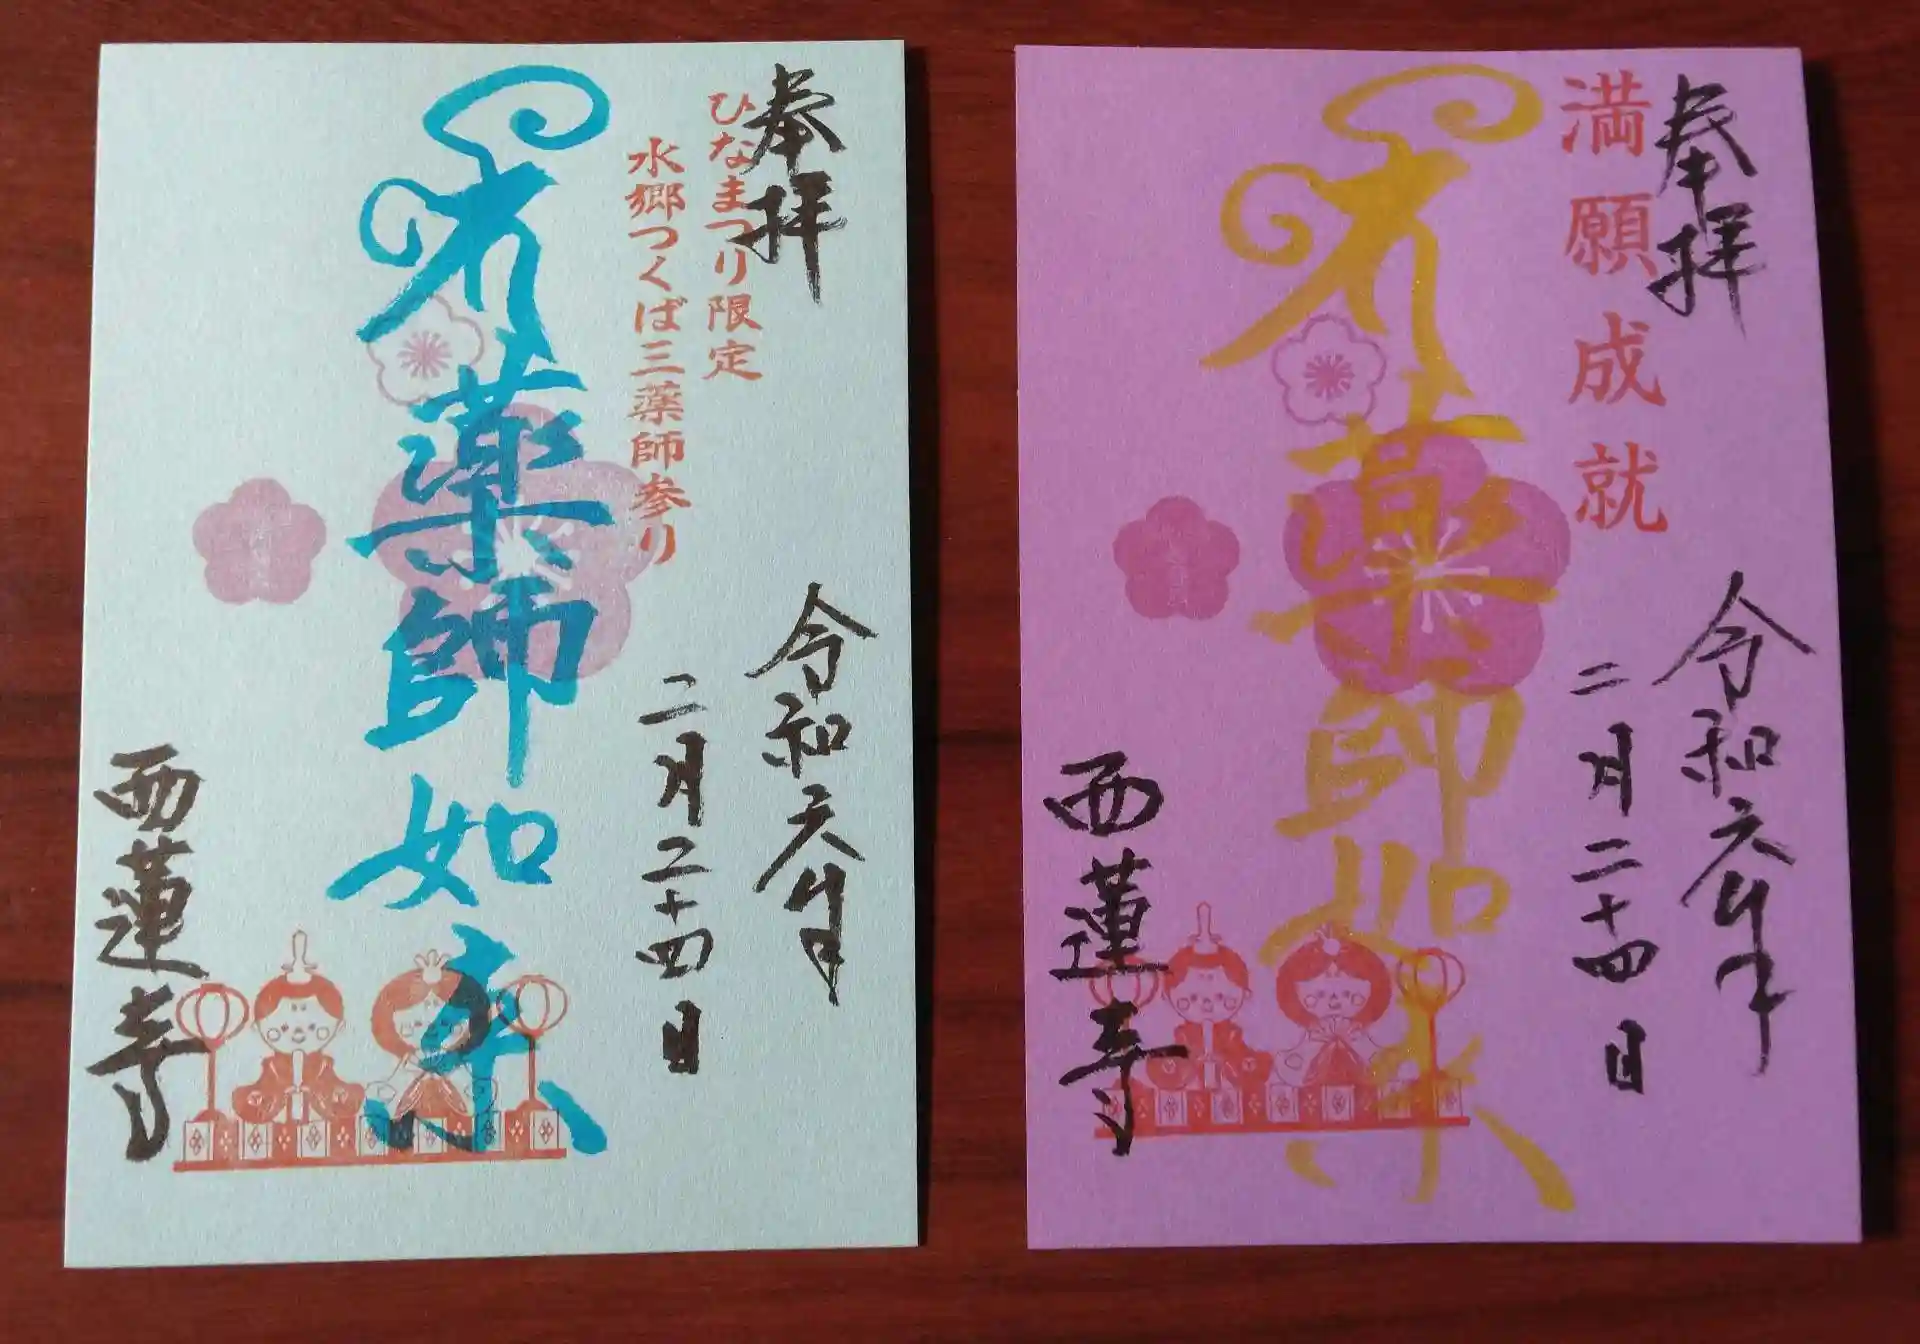 奉拝
ひなまつり限定
水郷つくば三薬師参り
令和六年
二月二十四日
薬師如来
西蓮寺
奉拝
満願成就
令和六年
二月二十四日
薬師如来
西蓮寺